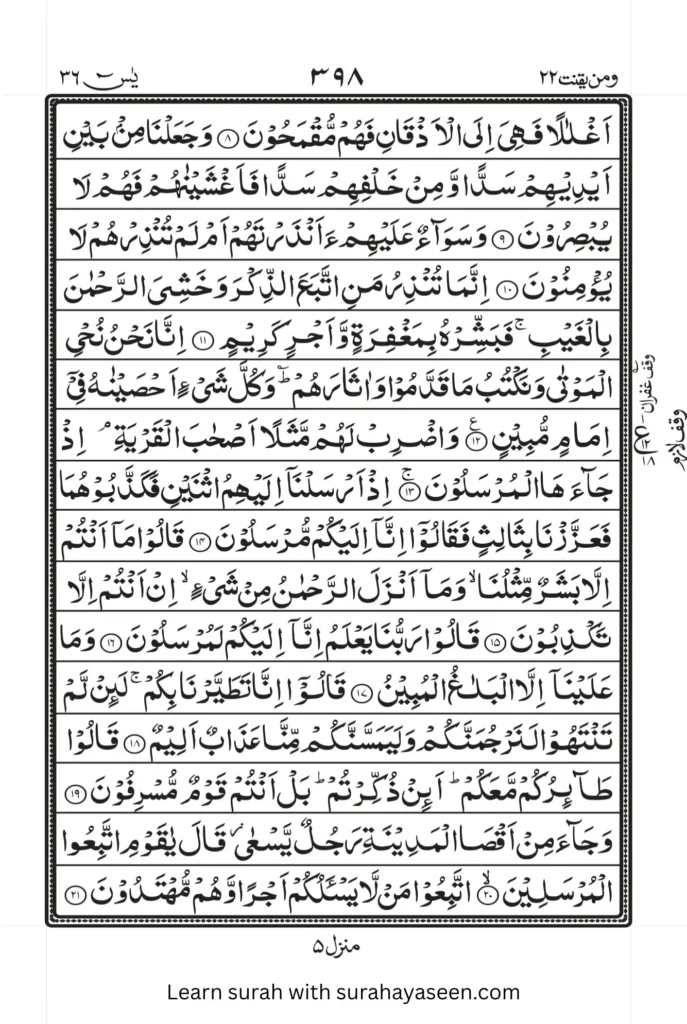 ومن يقنت ٢٢ ٣٩٨ يٰسٓ ٣٦
اَغْلٰلًا فَهِيَ اِلَى الْاَذْقَانِ فَهُمْ مُّقْمَحُوْنَ ۝٨ وَجَعَلْنَا مِنْۢ بَيْنِ
اَيْدِيْهِمْ سَدًّا وَّمِنْ خَلْفِهِمْ سَدًّا فَاَغْشَيْنٰهُمْ فَهُمْ لَا
يُبْصِرُوْنَ ۝٩ وَسَوَآءٌ عَلَيْهِمْ ءَاَنْذَرْتَهُمْ اَمْ لَمْ تُنْذِرْهُمْ لَا
يُؤْمِنُوْنَ ۝١٠ اِنَّمَا تُنْذِرُ مَنِ اتَّبَعَ الذِّكْرَ وَخَشِيَ الرَّحْمٰنَ
بِالْغَيْبِ ۚ فَبَشِّرْهُ بِمَغْفِرَةٍ وَّاَجْرٍ كَرِيْمٍ ۝١١ اِنَّا نَحْنُ نُحْيِ
الْمَوْتٰى وَنَكْتُبُ مَا قَدَّمُوْا وَاٰثَارَهُمْ ؕ وَكُلَّ شَيْءٍ اَحْصَيْنٰهُ فِيْٓ
اِمَامٍ مُّبِيْنٍ ۝١٢ ع وَاضْرِبْ لَهُمْ مَّثَلًا اَصْحٰبَ الْقَرْيَةِ ۘ اِذْ
جَآءَهَا الْمُرْسَلُوْنَ ۝١٣ ۚ اِذْ اَرْسَلْنَآ اِلَيْهِمُ اثْنَيْنِ فَكَذَّبُوْهُمَا
فَعَزَّزْنَا بِثَالِثٍ فَقَالُوْٓا اِنَّآ اِلَيْكُمْ مُّرْسَلُوْنَ ۝١٤ قَالُوْا مَآ اَنْتُمْ
اِلَّا بَشَرٌ مِّثْلُنَا ۙ وَمَآ اَنْزَلَ الرَّحْمٰنُ مِنْ شَيْءٍ ۙ اِنْ اَنْتُمْ اِلَّا
تَكْذِبُوْنَ ۝١٥ قَالُوْا رَبُّنَا يَعْلَمُ اِنَّآ اِلَيْكُمْ لَمُرْسَلُوْنَ ۝١٦ وَمَا
عَلَيْنَآ اِلَّا الْبَلٰغُ الْمُبِيْنُ ۝١٧ قَالُوْٓا اِنَّا تَطَيَّرْنَا بِكُمْ ۚ لَئِنْ لَّمْ
تَنْتَهُوْا لَنَرْجُمَنَّكُمْ وَلَيَمَسَّنَّكُمْ مِّنَّا عَذَابٌ اَلِيْمٌ ۝١٨ قَالُوْا
طَآئِرُكُمْ مَّعَكُمْ ؕ اَئِنْ ذُكِّرْتُمْ ؕ بَلْ اَنْتُمْ قَوْمٌ مُّسْرِفُوْنَ ۝١٩
وَجَآءَ مِنْ اَقْصَا الْمَدِيْنَةِ رَجُلٌ يَّسْعٰى ز قَالَ يٰقَوْمِ اتَّبِعُوا
الْمُرْسَلِيْنَ ۝٢٠ ۙ اتَّبِعُوْا مَنْ لَّا يَسْـَٔلُكُمْ اَجْرًا وَّهُمْ مُّهْتَدُوْنَ ۝٢١
وقف غفران
وقف لازم
منزل ٥
Learn surah with surahayaseen.com